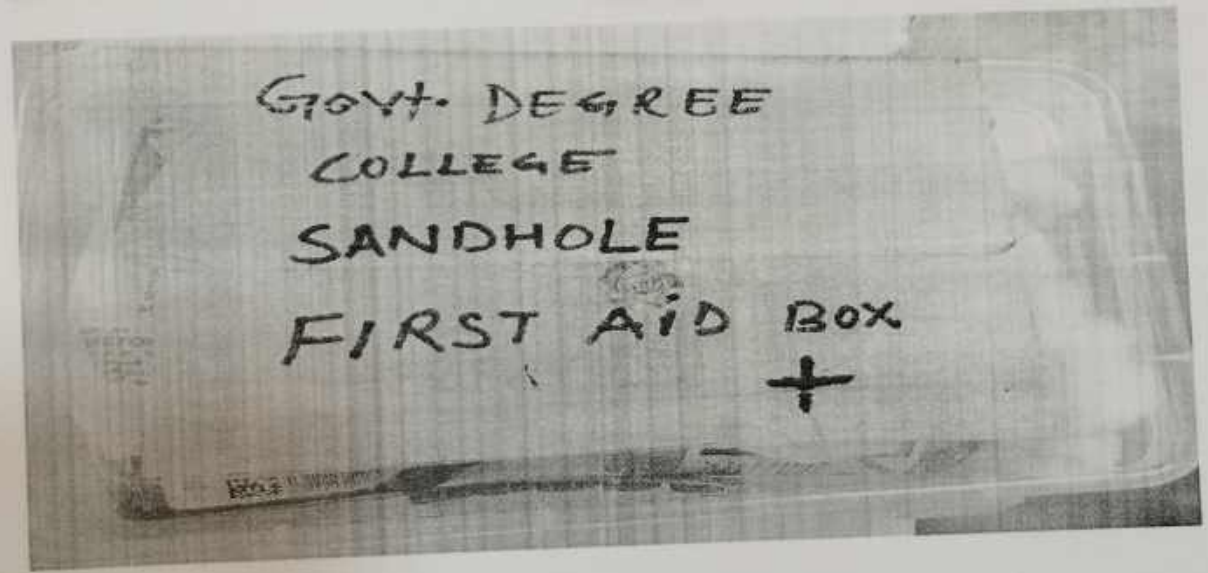 Govt. DEGREE
COLLEGE
SANDHOLE
FIRST AiD BOX
+